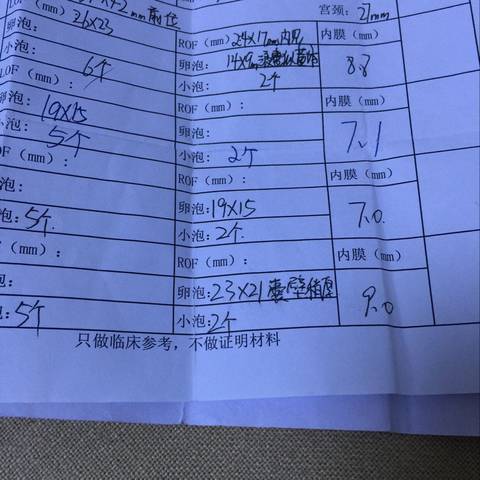 宫颈: 27mm
LOF(mm) 前位
26X23
卵泡:
ROF(mm) 24X17mm内见
内膜(mm)
小泡: 6个
卵泡: 14X9mm
8.8
LOF(mm):
小泡: 2个
卵泡: 19X15
ROF(mm):
内膜(mm)
小泡: 5个
卵泡:
7.1
OF(mm):
小泡: 2个
卵泡:
ROF(mm):
内膜(mm)
小泡: 5个.
卵泡: 19X15
7.0.
(mm):
小泡: 2个.
泡:
ROF(mm):
内膜(mm)
泡: 5个
卵泡: 23X21囊壁稍厚
9.0
小泡: 2个
只做临床参考，不做证明材料